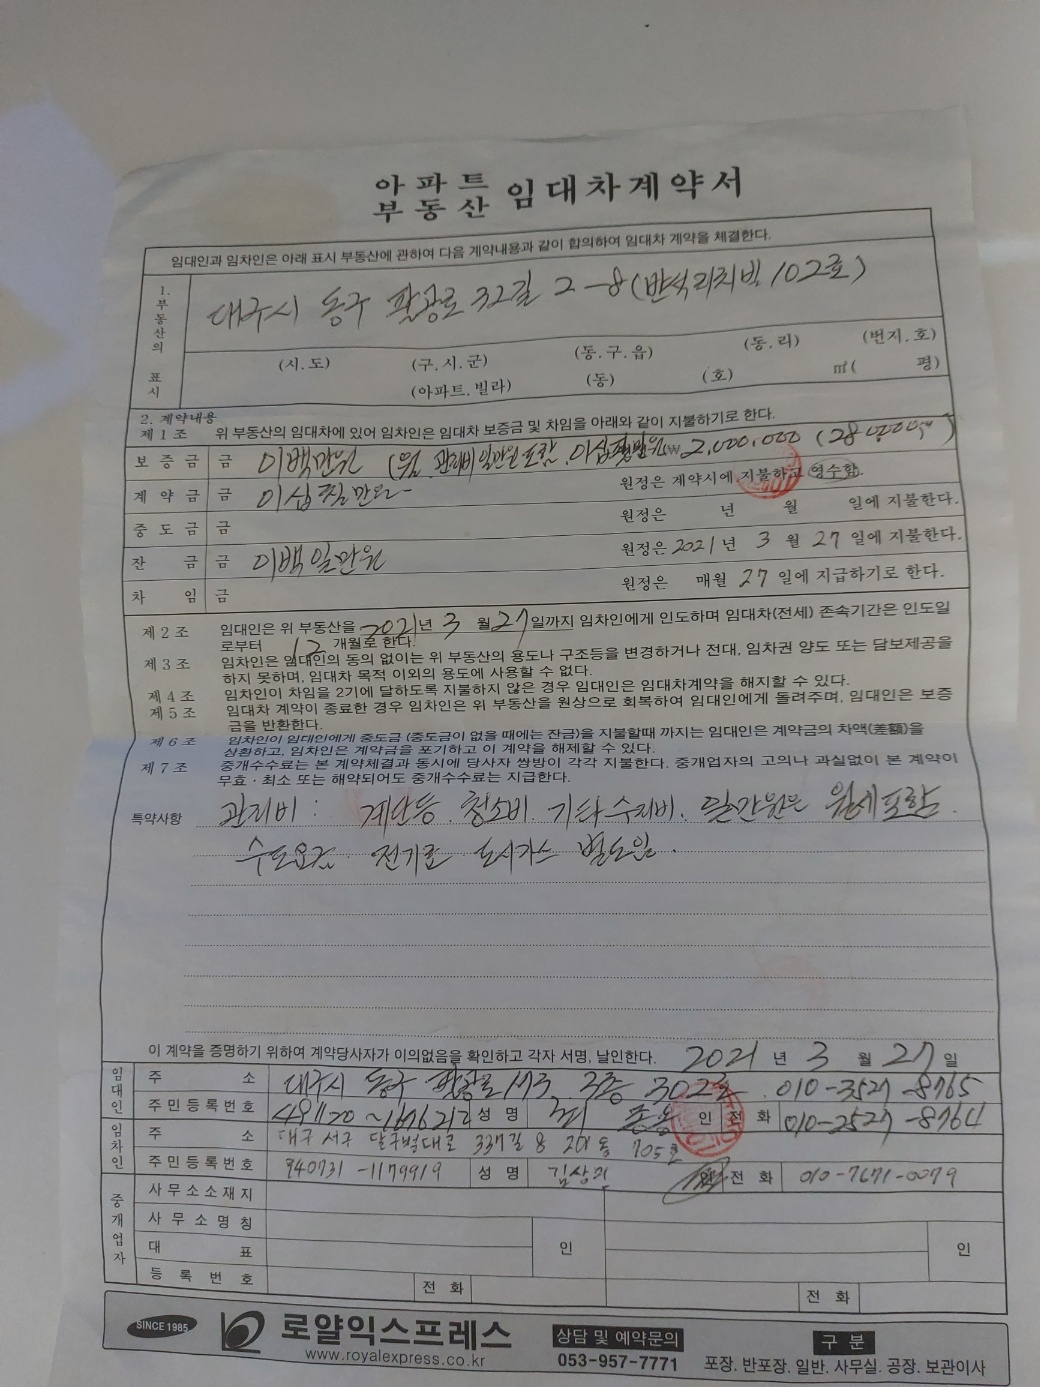 아파트 부동산 임대차계약서
임대인과 임차인은 아래 표시 부동산에 관하여 다음 계약내용과 같이 합의하여 임대차 계약을 체결한다.
1. 부동산의 표시
대구시 동구 팔공로 32길 2-8 (반석리치빌 102호)
(시.도) (구.시.군) (동.구.읍) (동.리) (번지.호)
(아파트.빌라) (동) (호) ㎡( 평)
2. 계약내용
제1조 위 부동산의 임대차에 있어 임차인은 임대차 보증금 및 차임을 아래와 같이 지불하기로 한다.
보증금 금 이백만원 (월 관리비 일만원 포함. 이십팔만원 ₩2,000,000 (280,000)
계약금 금 이십칠만원- 원정은 계약시에 지불하고 영수함.
중도금 금 원정은 년 월 일에 지불한다.
잔금 금 이백일만원 원정은 2021년 3월 27일에 지불한다.
차임 금 원정은 매월 27일에 지급하기로 한다.
제2조 임대인은 위 부동산을 2021년 3월 27일까지 임차인에게 인도하며 임대차(전세) 존속기간은 인도일
로부터 12 개월로 한다.
제3조 임차인은 임대인의 동의 없이는 위 부동산의 용도나 구조등을 변경하거나 전대, 임차권 양도 또는 담보제공을
하지 못하며, 임대차 목적 이외의 용도에 사용할 수 없다.
제4조 임차인이 차임을 2기에 달하도록 지불하지 않은 경우 임대인은 임대차계약을 해지할 수 있다.
제5조 임대차 계약이 종료한 경우 임차인은 위 부동산을 원상으로 회복하여 임대인에게 돌려주며, 임대인은 보증
금을 반환한다.
제6조 임차인이 임대인에게 중도금 (중도금이 없을 때에는 잔금)을 지불할때 까지는 임대인은 계약금의 차액(差額)을
상환하고, 임차인은 계약금을 포기하고 이 계약을 해제할 수 있다.
제7조 중개수수료는 본 계약체결과 동시에 당사자 쌍방이 각각 지불한다. 중개업자의 고의나 과실없이 본 계약이
무효·최소 또는 해약되어도 중개수수료는 지급한다.
특약사항 관리비 : 계단등. 청소비. 기타수리비. 일만원은 월세포함.
수도요금 전기료 도시가스 별도임.
이 계약을 증명하기 위하여 계약당사자가 이의없음을 확인하고 각자 서명, 날인한다. 2021년 3월 27일
임대인 주소 대구시 동구 팔공로 3층 302호. 010-3527-8765
주민등록번호 성명 인 전화 010-2527-8764
임차인 주소 대구 서구 달구벌대로 337길 8 201동 705호
주민등록번호 940731-1179919 성명 인 전화 010-7671-0079
중개업자 사무소소재지
사무소명칭
대표 인 인
등록번호 전화 전화
SINCE 1985 로얄익스프레스 상담 및 예약문의 구분
www.royalexpress.co.kr 053-957-7771 포장. 반포장. 일반. 사무실. 공장. 보관이사